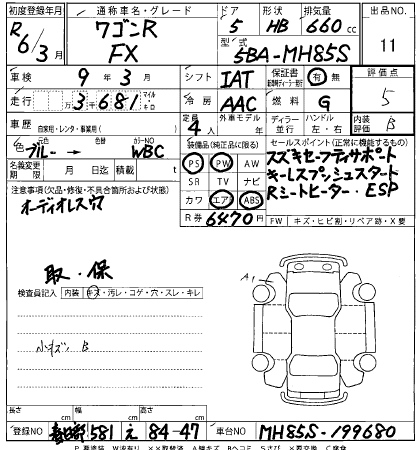 初度登録年月 通称車名・グレード ドア 形状 排気量 出品NO.
R6/3月 ワゴンR FX 5 HB 660cc 11
型式 5BA-MH85S
車検 9年3月 シフト IAT 保証書 有 無 評価点
走行 3千681 マイル キロ 冷房 AAC 燃料 G 5
車歴 自家用・レンタ・事業用( ) 定員 4人 外車モデル 年 ディーラー 並行 ハンドル 左・右 内装 B
色 元色 ブルー→ 色替 カラーNO WBC 装備品(純正品に限る) セールスポイント(正常に機能するもの)
名義変更期限 月 日 積載 t PS PW AW スズキセーフティサポート
注意事項(欠品・修復・不具合箇所および状態) SR TV ナビ キーレスプッシュスタート
オーディオレス穴 カワ エアB ABS Rシートヒーター・ESP
R券 6470円 FW キズ・ヒビ割・リペア跡・X要
取・保
検査員記入 内装 キズ・汚レ・コゲ・穴・スレ・キレ
小キズ B
A1
長さ cm 幅 cm 高さ cm
登録NO 春日部 581 え 84-47 車台NO MH85S-199680